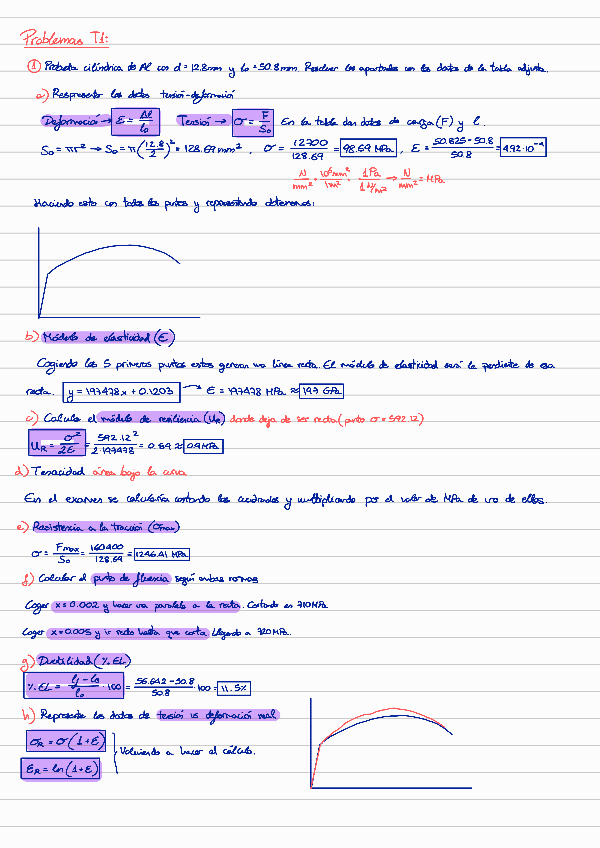 Problemas T1:
① Probeta cilíndrica de Al con d = 12.8mm y l₀ = 50.8mm. Resolver los apartados con los datos de la tabla adjunta.
a) Representar los datos tensión-deformación
Deformación → ε = Δl/l₀ Tensión → σ = F/S₀ En la tabla dan datos de carga (F) y l.
S₀ = πr² → S₀ = π(12.8/2)² = 128.69mm², σ = 12700/128.69 = 98.69 MPa, ε = 50.825 - 50.8/50.8 = 4.92·10⁻⁴
N/mm² · 10⁶mm²/1m² · 1Pa/1N/m² → N/mm² = MPa
Haciendo esto con todos los puntos y representando obtenemos:
b) Módulo de elasticidad (E)
Cogiendo los 5 primeros puntos estos generan una línea recta. El módulo de elasticidad será la pendiente de esa
recta. y = 197478x + 0.1203 → E = 197478 MPa ≈ 197 GPa
c) Calcula el módulo de resiliencia (UR) donde deja de ser recta (punto σ = 592.12)
UR = σ²/2E = 592.12²/2·197478 = 0.89 ≈ 0.9MPa
d) Tenacidad área bajo la curva
En el examen se calcularía contando los cuadrados y multiplicando por el valor de MPa de uno de ellos.
e) Resistencia a la tracción (σmax)
σ = Fmax/S₀ = 160400/128.69 = 1246.41 MPa
f) Calcular el punto de fluencia según ambas normas
Coger x = 0.002 y hacer una paralela a la recta. Cortando en 710MPa
Coger x = 0.005 y ir recto hasta que corta. Llegando a 720MPa.
g) Ductilidad (%EL)
%EL = lf - l₀/l₀ · 100 = 56.642 - 50.8/50.8 · 100 = 11.5%
h) Representa los datos de tensión vs deformación real
σR = σ(1+ε)
Volviendo a hacer el cálculo.
εR = ln(1+ε)